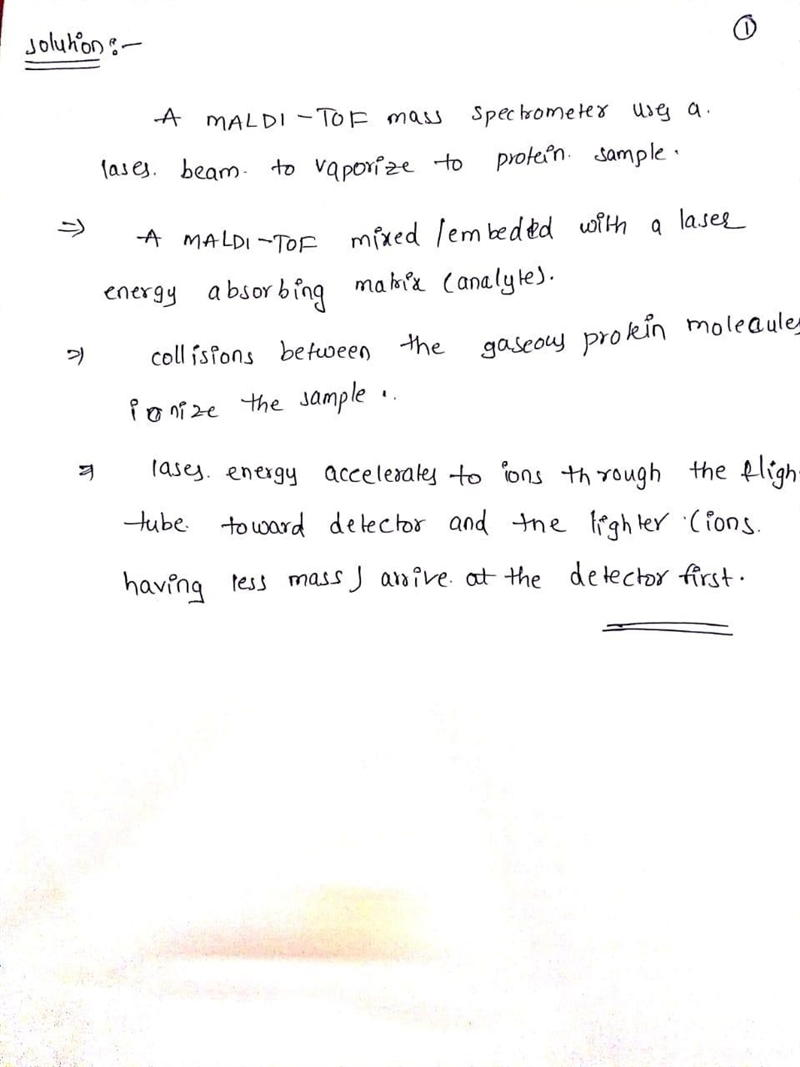 ①
solution:-
A MALDI-TOF mass spectrometer uses a.
lases. beam. to vaporize to protein. sample.
⇒ A MALDI-TOF mixed /embedded with a laser
energy absorbing matrix (analyte).
⇒ collisions between the gaseous protein molecules
ionize the sample ..
⇒ lases. energy accelerates to ions through the fligh
tube. toward detector and the lighter (ions.
having less mass) arrive. at the detector first.